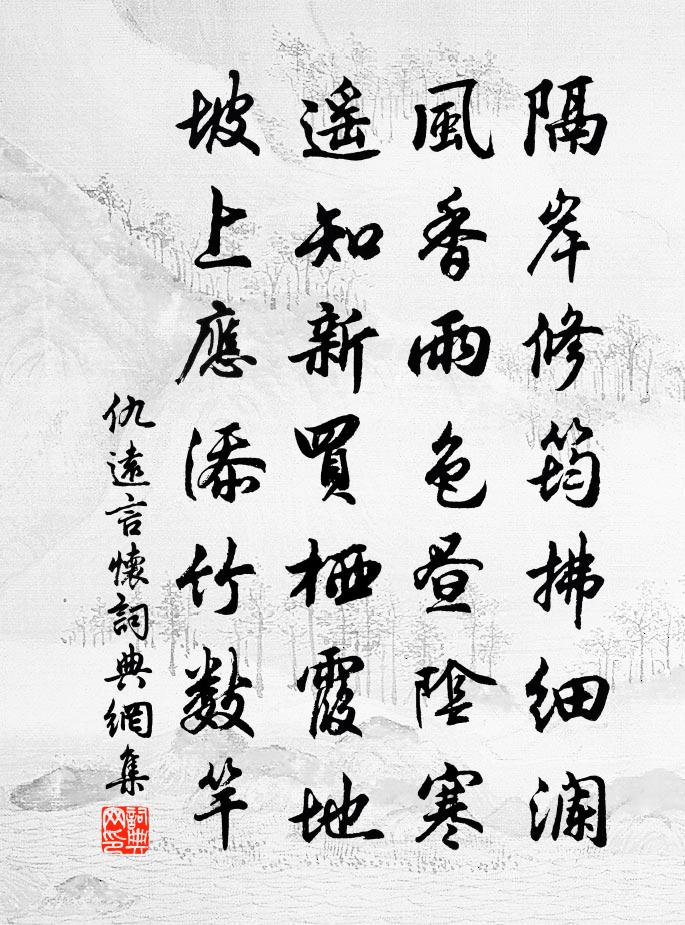 隔岸修筠拂細瀾
風香雨色晝陰寒
遥知新買栖霞地
坡上應添竹數竿
仇遠言懷詞典網集
詞典网印